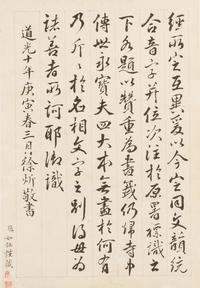 經所定互異爰以今定同文韻統
合音字并位次注於原署標識之
下各題以贊重為書籤仍帰寺中
傳世永寶夫四大本無盡於何有
乃斤斤於名相文字之別得毋為
誌善者所訶耶御識
道光十年庚寅春三月徐炘敬書